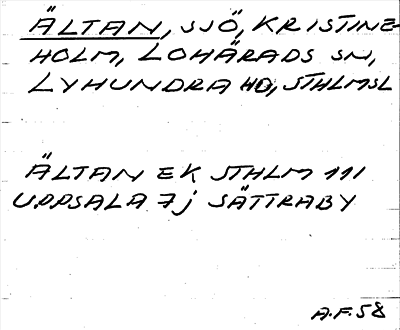 ÄLTAN, SJÖ, KRISTINE-
HOLM, LOHÄRADS SN,
LYHUNDRA HD, STHLMSL
ÄLTAN EK STHLM 111
UPPSALA 7j SÄTTRABY
A.F. 58